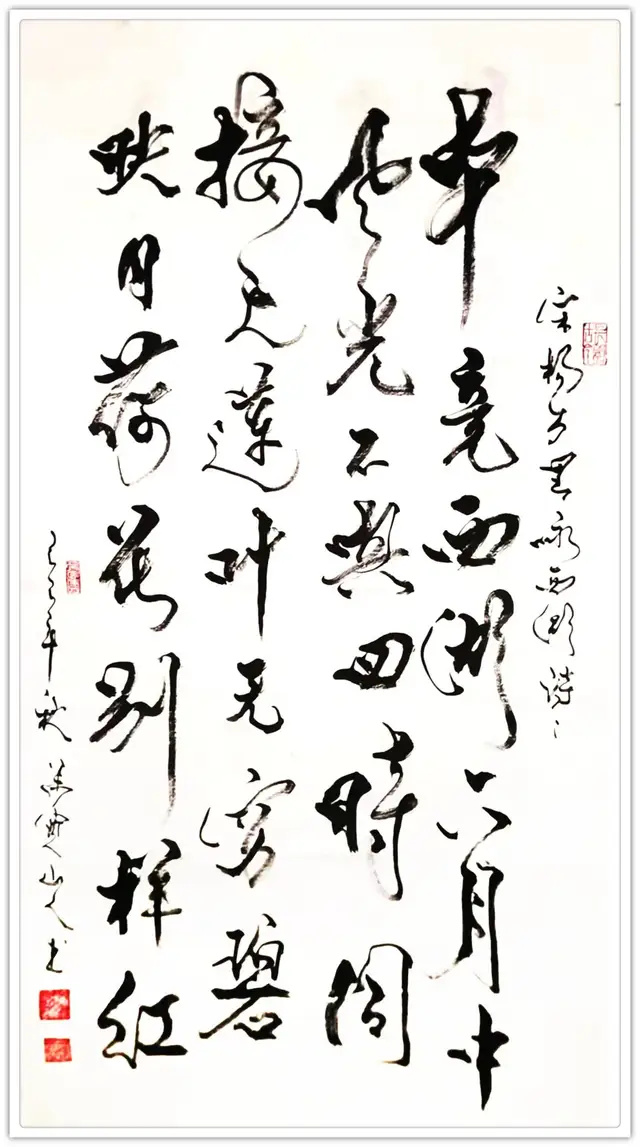 宋杨万里咏西湖诗
毕竟西湖六月中
风光不與四時同
接天蓮叶无穷碧
映月荷花别样红
年秋 山人书